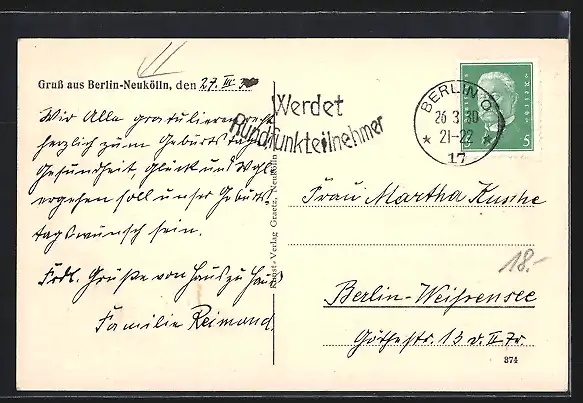 Gruß aus Berlin-Neukölln, den 27. III. 30
Wir Alle gratulieren recht
herzlich zum Geburtstage
Gesundheit, Glück und Wohl-
ergehen soll unser Geburts-
tagswunsch sein.
Frdl. Grüße von Haus zu Haus
Familie Reimond.
Kunst-Verlag Graetz, Neukölln
Werdet
Rundfunkteilnehmer
BERLIN O
26.3.30
21-22
17
5
Frau Martha Kusche
18.-
Berlin-Weißensee
Göthestr. 13 v. II Tr.
374